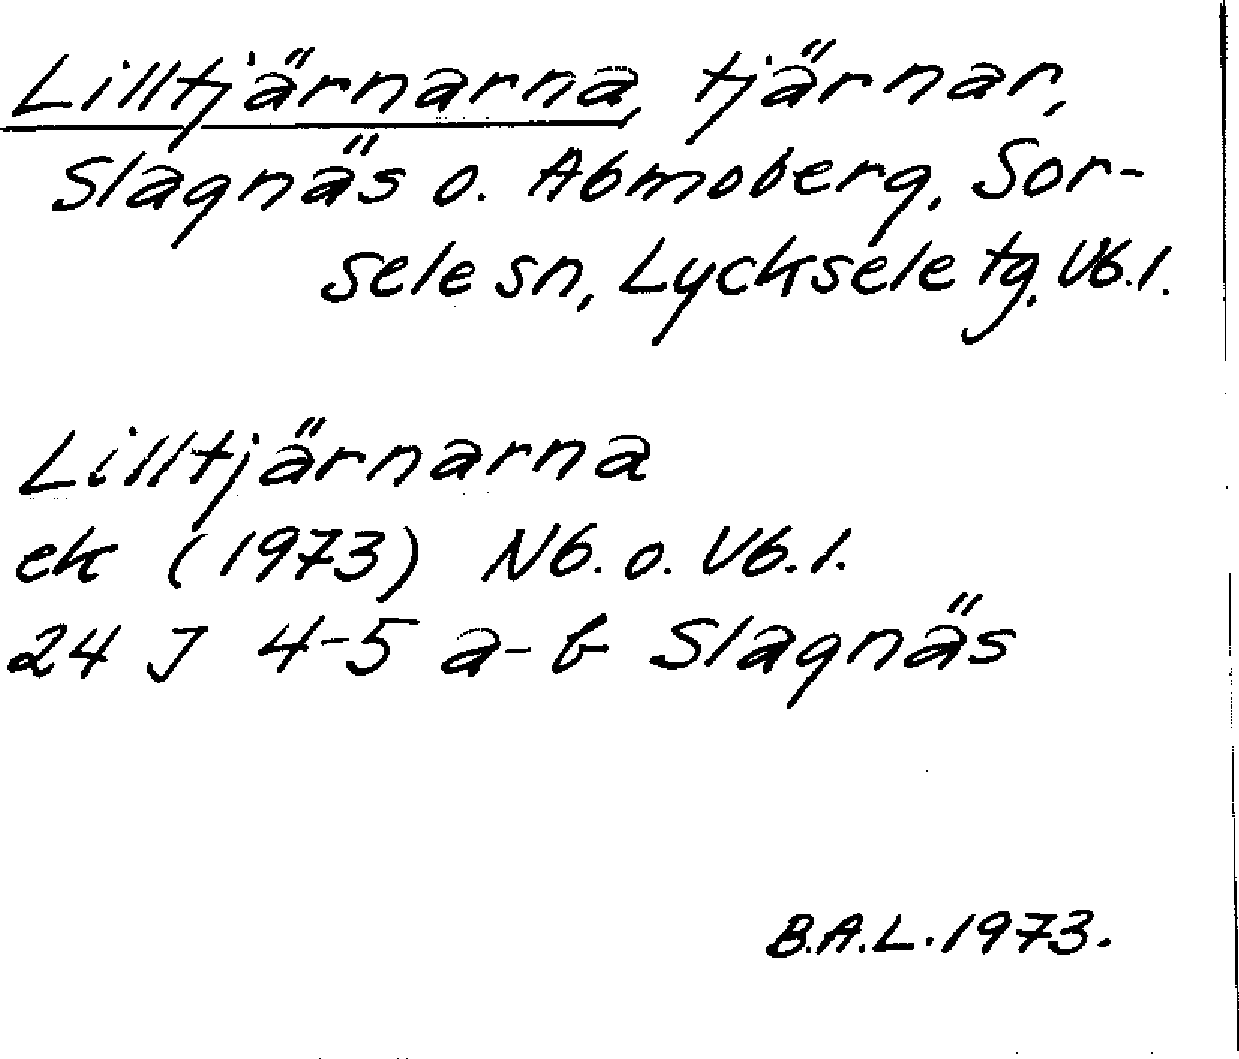 Lilltjärnarna, tjärnar,
Slagnäs o. Abmoberg, Sor-
sele sn, Lycksele tg, Vb.l.
Lilltjärnarna
ek (1973) Nb. o. Vb.l.
24 J 4-5 a-b Slagnäs
B.A.L. 1973.